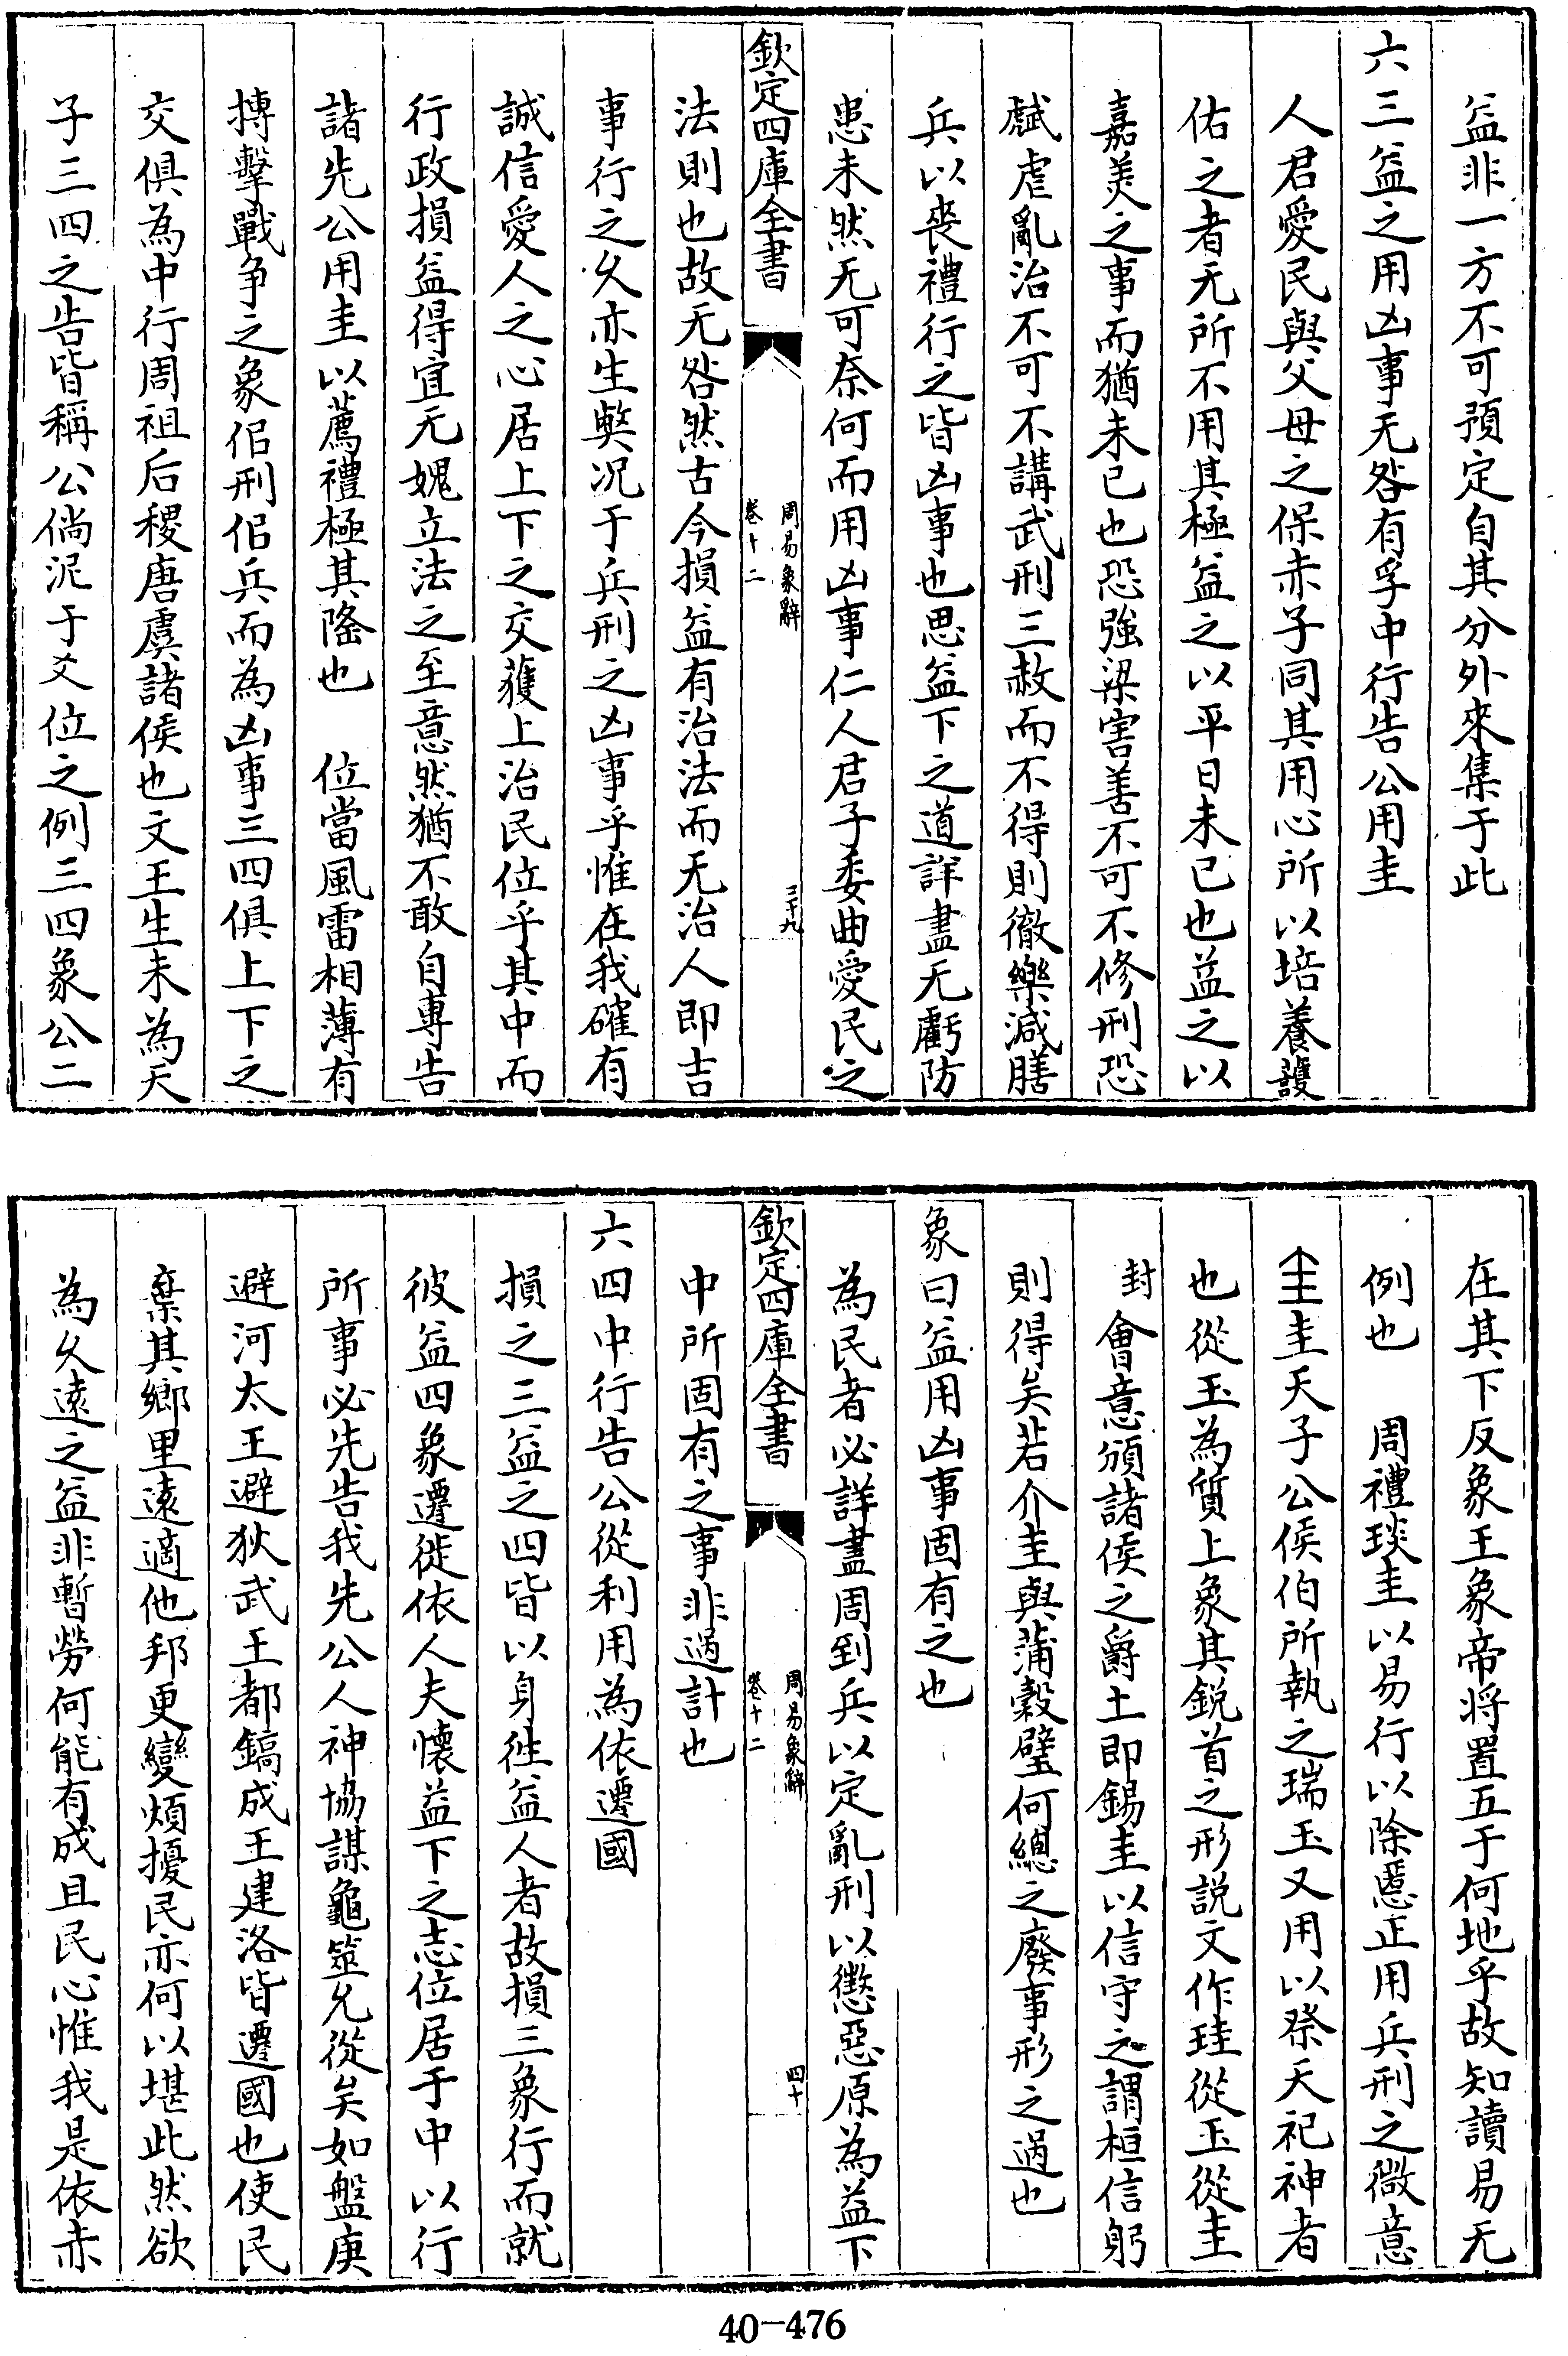 益非一方不可預定自其分外來集于此
六三益之用凶事无咎有孚中行告公用圭
人君愛民與父母之保赤子同其用心所以培養護
佑之者无所不用其極益之以平日未已也益之以
嘉美之事而猶未已也恐強梁害善不可不修刑恐
虣虐亂治不可不講武刑三赦而不得則徹樂減膳
兵以喪禮行之皆凶事也思益下之道詳盡无虧防
患未然无可奈何而用凶事仁人君子委曲愛民之
欽定四庫全書
周易象辭
卷十二
三十九
法則也故无咎然古今損益有治法而无治人即吉
事行之久亦生弊况于兵刑之凶事乎惟在我確有
誠信愛人之心居上下之交獲上治民位乎其中而
行政損益得宜无媿立法之至意然猶不敢自專告
諸先公用圭以薦禮極其隆也　位當風雷相薄有
搏擊戰争之象侣刑侣兵而為凶事三四俱上下之
交俱為中行周祖后稷唐虞諸侯也文王生未為天
子三四之告皆稱公倘泥于爻位之例三四象公二
在其下反象王象帝将置五于何地乎故知讀易无
例也　周禮琰圭以易行以除慝正用兵刑之微意
圭圭天子公侯伯所執之瑞玉又用以祭天祀神者
也從玉為質上象其鋭首之形説文作珪從玉從圭
封會意頒諸侯之爵土即錫圭以信守之謂桓信躬
則得矣若介圭與蒲穀璧何總之廢事形之過也
象曰益用凶事固有之也
為民者必詳盡周到兵以定亂刑以懲惡原為益下
欽定四庫全書
周易象辭
卷十二
四十
中所固有之事非過計也
六四中行告公從利用為依遷國
損之三益之四皆以身徃益人者故損三象行而就
彼益四象遷徙依人夫懐益下之志位居于中以行
所事必先告我先公人神協謀龜筮允從矣如盤庚
避河太王避狄武王都鎬成王建洛皆遷國也使民
棄其鄉里遠適他邦更變煩擾民亦何以堪此然欲
為久遠之益非暫勞何能有成且民心惟我是依赤
40-476